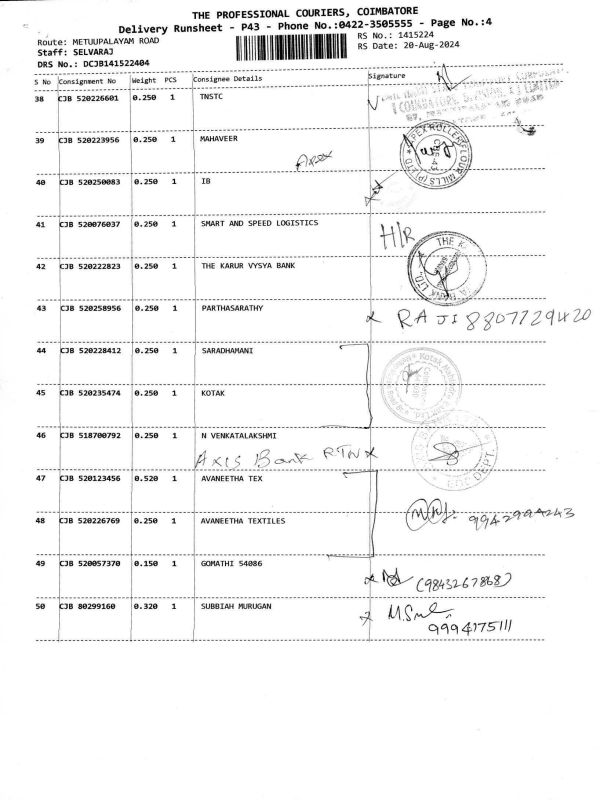 THE PROFESSIONAL COURIERS, COIMBATORE
Delivery Runsheet - P43 - Phone No.:0422-3505555 - Page No.:4
Route: METUUPALAYAM ROAD
RS No.: 1415224
Staff: SELVARAJ
RS Date: 20-Aug-2024
DRS No.: DCJB141522404
S No Consignment No Weight PCS Consignee Details Signature
38 CJB 520226601 0.250 1 TNSTC
39 CJB 520223956 0.250 1 MAHAVEER
Apex
APEX ROLLER FLOUR MILLS (P) LTD
40 CJB 520250083 0.250 1 IB
41 CJB 520076037 0.250 1 SMART AND SPEED LOGISTICS
H/R
42 CJB 520222823 0.250 1 THE KARUR VYSYA BANK
43 CJB 520258956 0.250 1 PARTHASARATHY
RAJI 8807729420
44 CJB 520228412 0.250 1 SARADHAMANI
45 CJB 520235474 0.250 1 KOTAK
46 CJB 518700792 0.250 1 N VENKATALAKSHMI
Axis Bank RTN
47 CJB 520123456 0.520 1 AVANEETHA TEX
48 CJB 520226769 0.250 1 AVANEETHA TEXTILES
9942994243
49 CJB 520057370 0.150 1 GOMATHI 54086
(9843267868)
50 CJB 80299160 0.320 1 SUBBIAH MURUGAN
9994175111